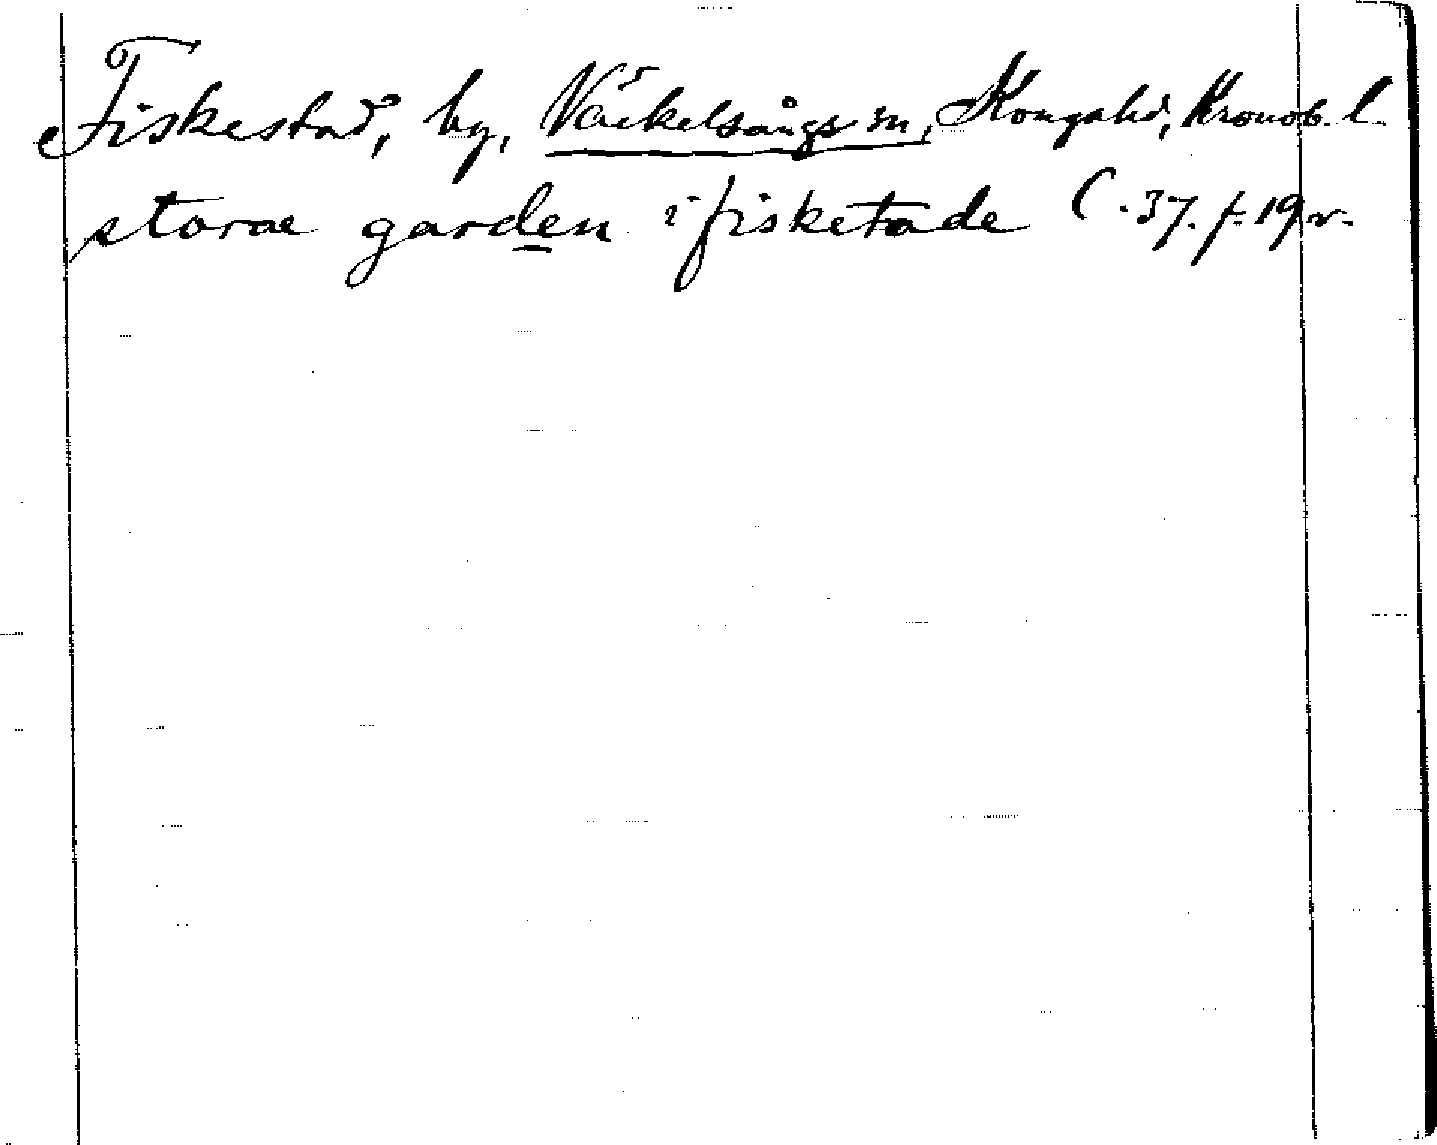 Fiskestad, by, Väckelsångs sn, Konga hd, Kronob. l.
storae garden i fisketade C. 37. f. 19 v.